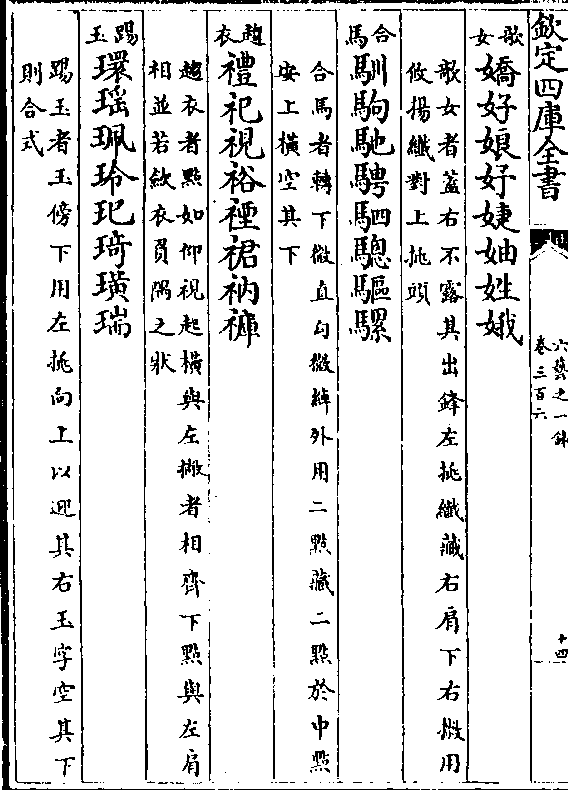 欽定四庫全書
六藝之一錄
卷三百六
十四
歌女
嬌好娘好婕妯姓娥
歌女者蓋右不露其出鋒左挑纖藏右肩下右撇用
攸揚纖對上挑頭
合馬
馴駒馳騁駟驄驅騾
合馬者轉下微直勾微綽外用二點藏二點於中點
安上橫空其下
趨衣
禮祀視裕禋裙衲褲
趨衣者點如仰視起橫與左撇者相齊下點與左肩
相並若斂衣員隅之狀
踢玉
環瑶珮玲玘琦璜瑞
踢玉者玉傍下用左挑向上以迎其右玉字空其下
則合式